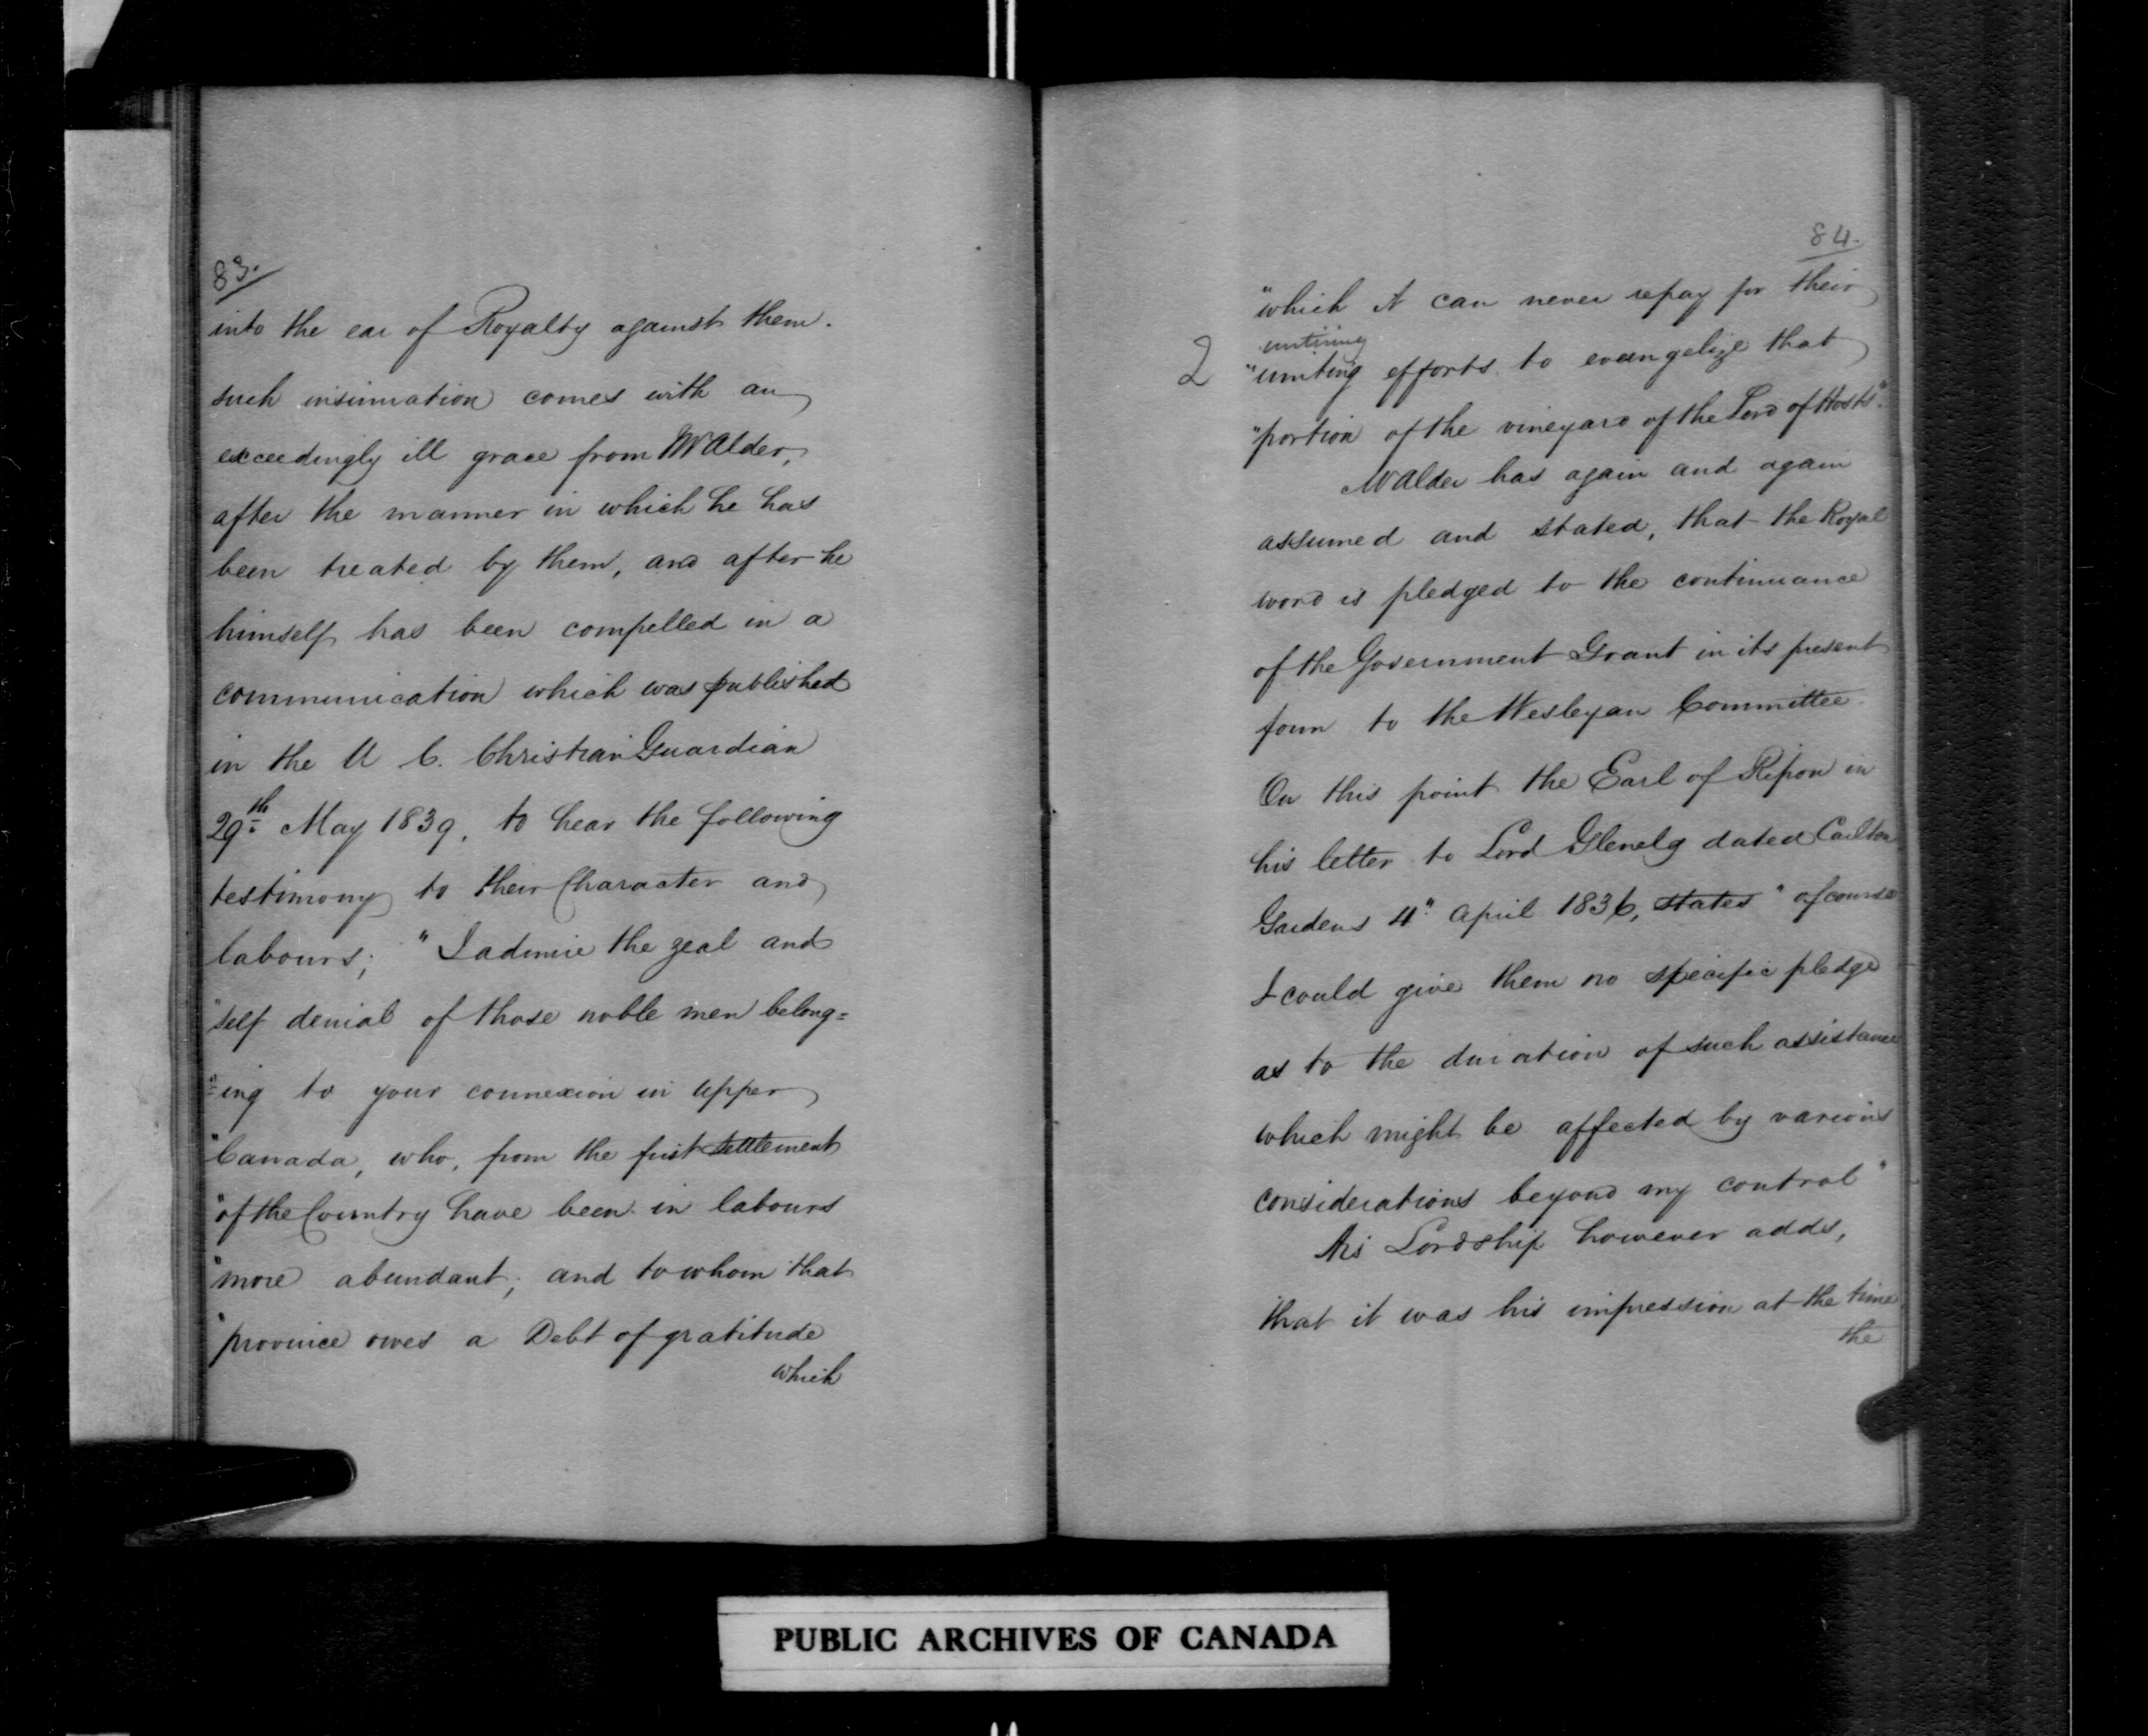 83.
into the ear of Royalty against them.
such insinuation comes with an
exceedingly ill grace from Mr Alder,
after the manner in which he has
been treated by them, and after he
himself has been compelled in a
communication which was published
in the U C. Christian Guardian
29th May 1839, to hear the following
testimony to their Character and
labours; "I admire the zeal and
"self denial of those noble men belong=
"=ing to your connexion in upper
"Canada, who, from the first settlement
"of the Country have been in labours
"more abundant; and to whom that
"province owes a Debt of gratitude
which
84.
"which it can never repay for their
untiring
2 "uniting efforts to evangelize that
"portion of the vineyard of the Lord of Hosts".
Mr Alder has again and again
assumed and stated, that the Royal
word is pledged to the continuance
of the Government Grant in its present
form to the Wesleyan Committee.
On this point the Earl of Ripon in
his letter to Lord Glenelg dated Carlton
Gardens 4" April 1836, states "of course
I could give them no specific pledge
as to the duration of such assistance
which might be affected by various
considerations beyond my control"
His Lordship however adds,
that it was his impression at the time
the
PUBLIC ARCHIVES OF CANADA